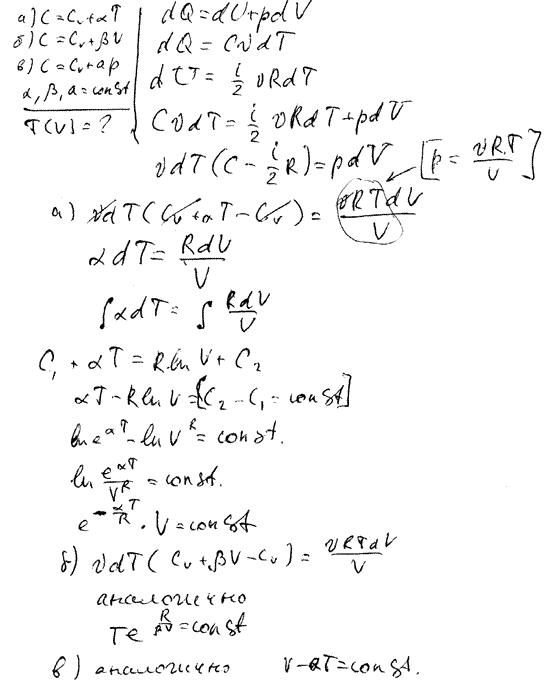 а) C = Cᵥ + αT
б) C = Cᵥ + βV
в) C = Cᵥ + ap
α, β, a = const
T(V) = ?
dQ = dU + pdV
dQ = CνdT
dU = i/2 νRdT
CνdT = i/2 νRdT + pdV
νdT(C - i/2 R) = pdV [p = νRT/V]
а) νdT(Cᵥ + αT - Cᵥ) = νRTdV/V
αdT = RdV/V
∫αdT = ∫RdV/V
C₁ + αT = R ln V + C₂
αT - R ln V = [C₂ - C₁ = const]
ln e^(αT) - ln V^R = const.
ln e^(αT)/V^R = const.
e^(-αT/R) · V = const
б) νdT(Cᵥ + βV - Cᵥ) = νRTdV/V
аналогично
Te^(R/βV) = const
в) аналогично V - aT = const.